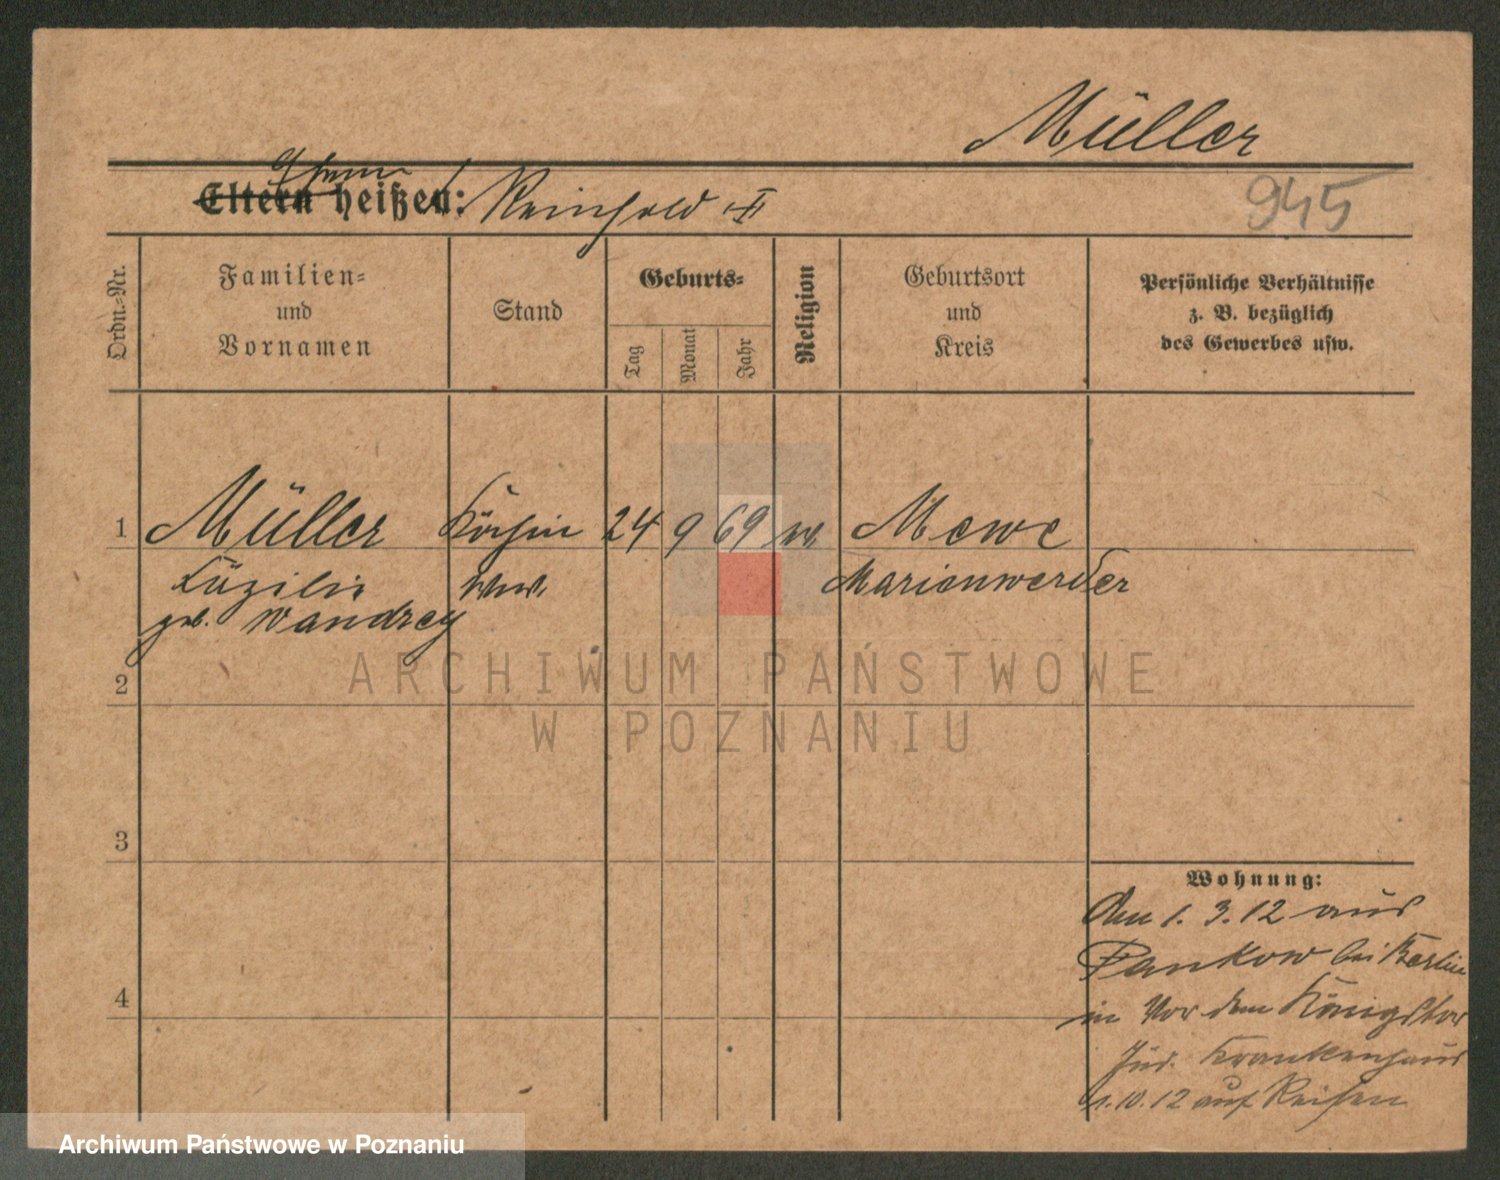 Müller
Ehemann
Eltern heißen: Reinhold II
945
Ordn.-Nr.
Familien-
und
Vornamen
Stand
Geburts-
Tag
Monat
Jahr
Religion
Geburtsort
und
Kreis
Persönliche Verhältnisse
z. B. bezüglich
des Gewerbes usw.
1 Müller Köchin 24 9 69 Mewe
Zäzilie Ww. Marienwerder
geb. Wandrey
2
3
4
Wohnung:
Am 1. 3. 12 aus
Pankow bei Berlin
in Vor dem Königstor
Jüd. Krankenhaus
1. 10. 12 auf Reisen
ARCHIWUM PAŃSTWOWE
W POZNANIU
Archiwum Państwowe w Poznaniu